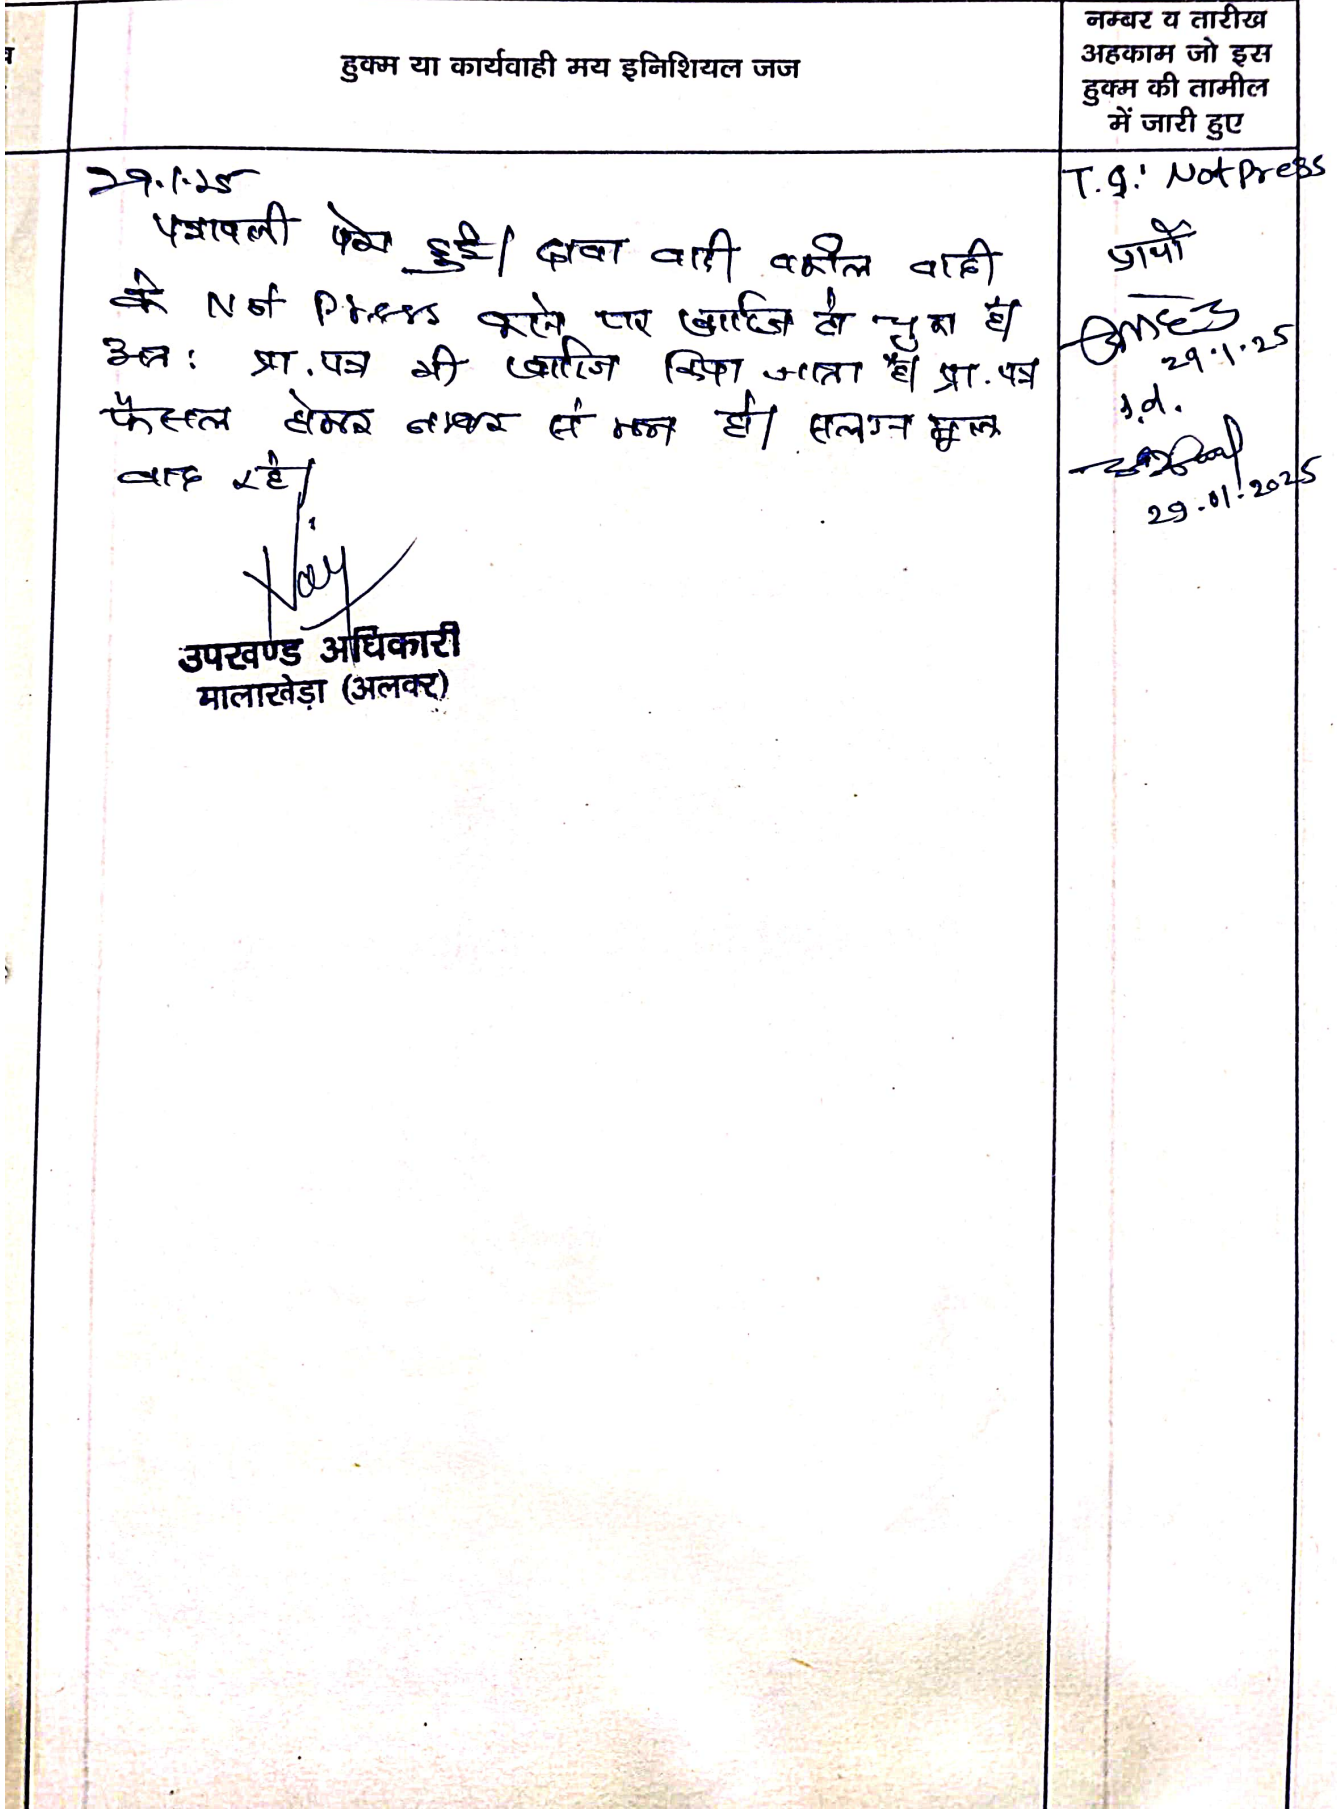 हुक्म या कार्यवाही मय इनिशियल जज
नम्बर व तारीख
अहकाम जो इस
हुक्म की तामील
में जारी हुए
29.1.25
पत्रावली पेश हुई। दावा वादी वकील वादी
के Not Press करने पर खारिज हो चुका है।
अतः प्रा.पत्र भी खारिज किया जाता है। प्रा.पत्र
फैसल होकर नम्बर से कम हो। सलग्न मूल
वाद रहे।
उपखण्ड अधिकारी
मालाखेड़ा (अलवर)
T.I. Not Press
प्रार्थी
29.1.25
29.01.2025